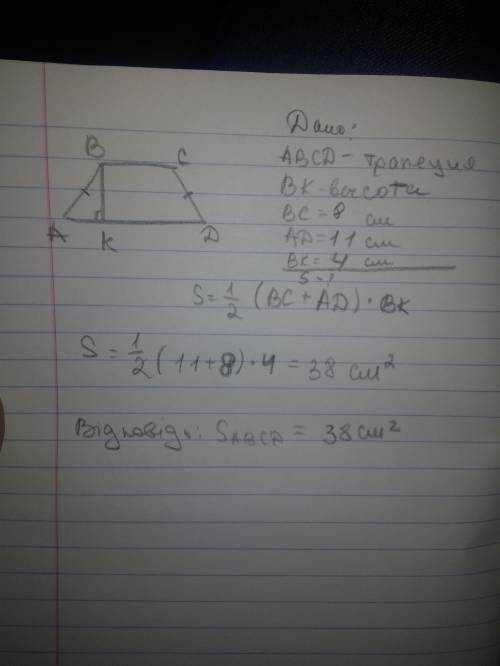 Дано:
B C
ABCD - трапеция
BK - высота
BC = 8 см
A K D
AD = 11 см
BK = 4 см
S - ?
S = 1/2 (BC + AD) · BK
S = 1/2 (11 + 8) · 4 = 38 см²
Відповідь: SABCD = 38 см²